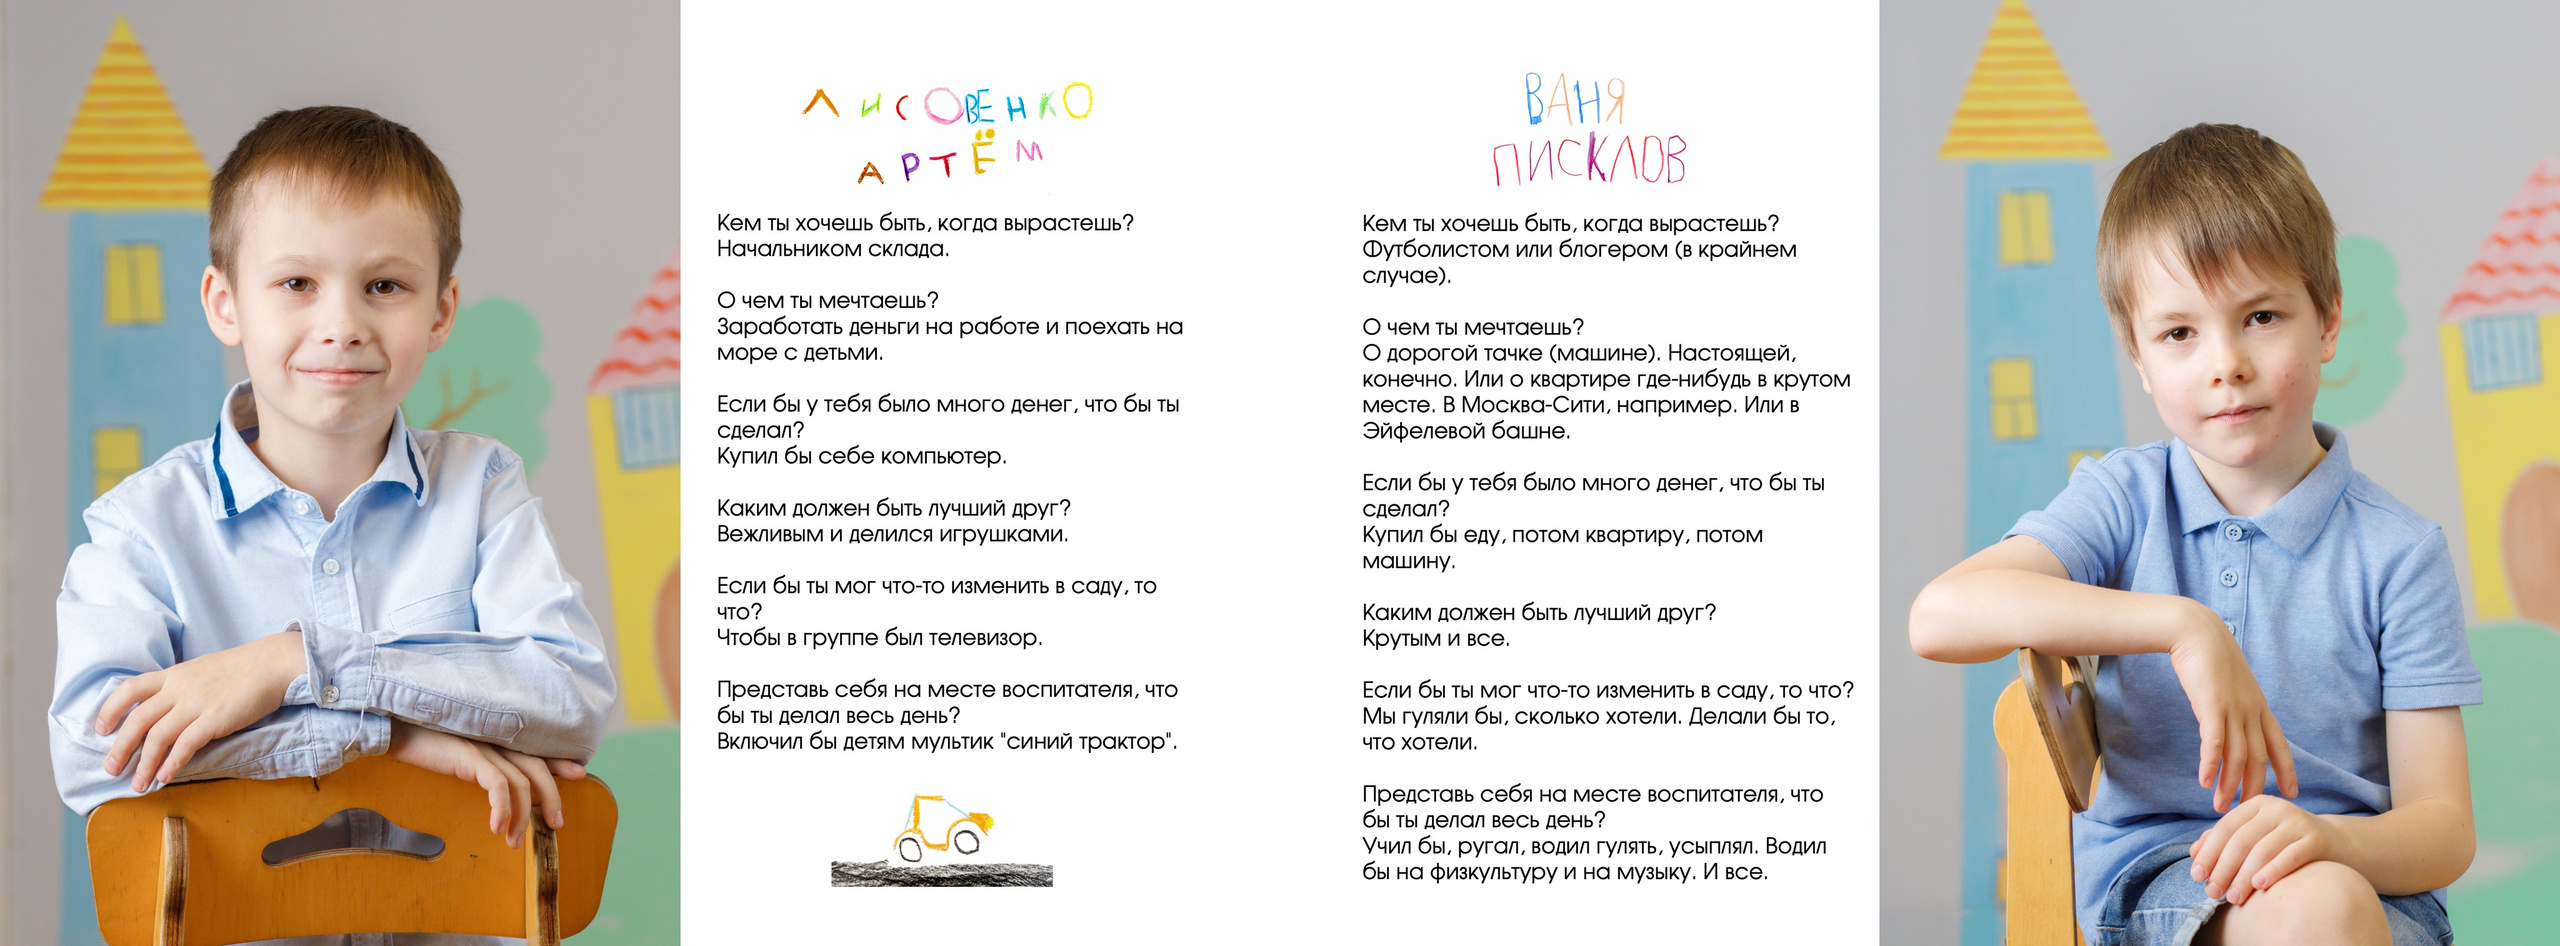 ЛИСОВЕНКО
АРТЁМ
Кем ты хочешь быть, когда вырастешь?
Начальником склада.
О чем ты мечтаешь?
Заработать деньги на работе и поехать на
море с детьми.
Если бы у тебя было много денег, что бы ты
сделал?
Купил бы себе компьютер.
Каким должен быть лучший друг?
Вежливым и делился игрушками.
Если бы ты мог что-то изменить в саду, то
что?
Чтобы в группе был телевизор.
Представь себя на месте воспитателя, что
бы ты делал весь день?
Включил бы детям мультик "синий трактор".
ВАНЯ
ПИСКЛОВ
Кем ты хочешь быть, когда вырастешь?
Футболистом или блогером (в крайнем
случае).
О чем ты мечтаешь?
О дорогой тачке (машине). Настоящей,
конечно. Или о квартире где-нибудь в крутом
месте. В Москва-Сити, например. Или в
Эйфелевой башне.
Если бы у тебя было много денег, что бы ты
сделал?
Купил бы еду, потом квартиру, потом
машину.
Каким должен быть лучший друг?
Крутым и все.
Если бы ты мог что-то изменить в саду, то что?
Мы гуляли бы, сколько хотели. Делали бы то,
что хотели.
Представь себя на месте воспитателя, что
бы ты делал весь день?
Учил бы, ругал, водил гулять, усыплял. Водил
бы на физкультуру и на музыку. И все.